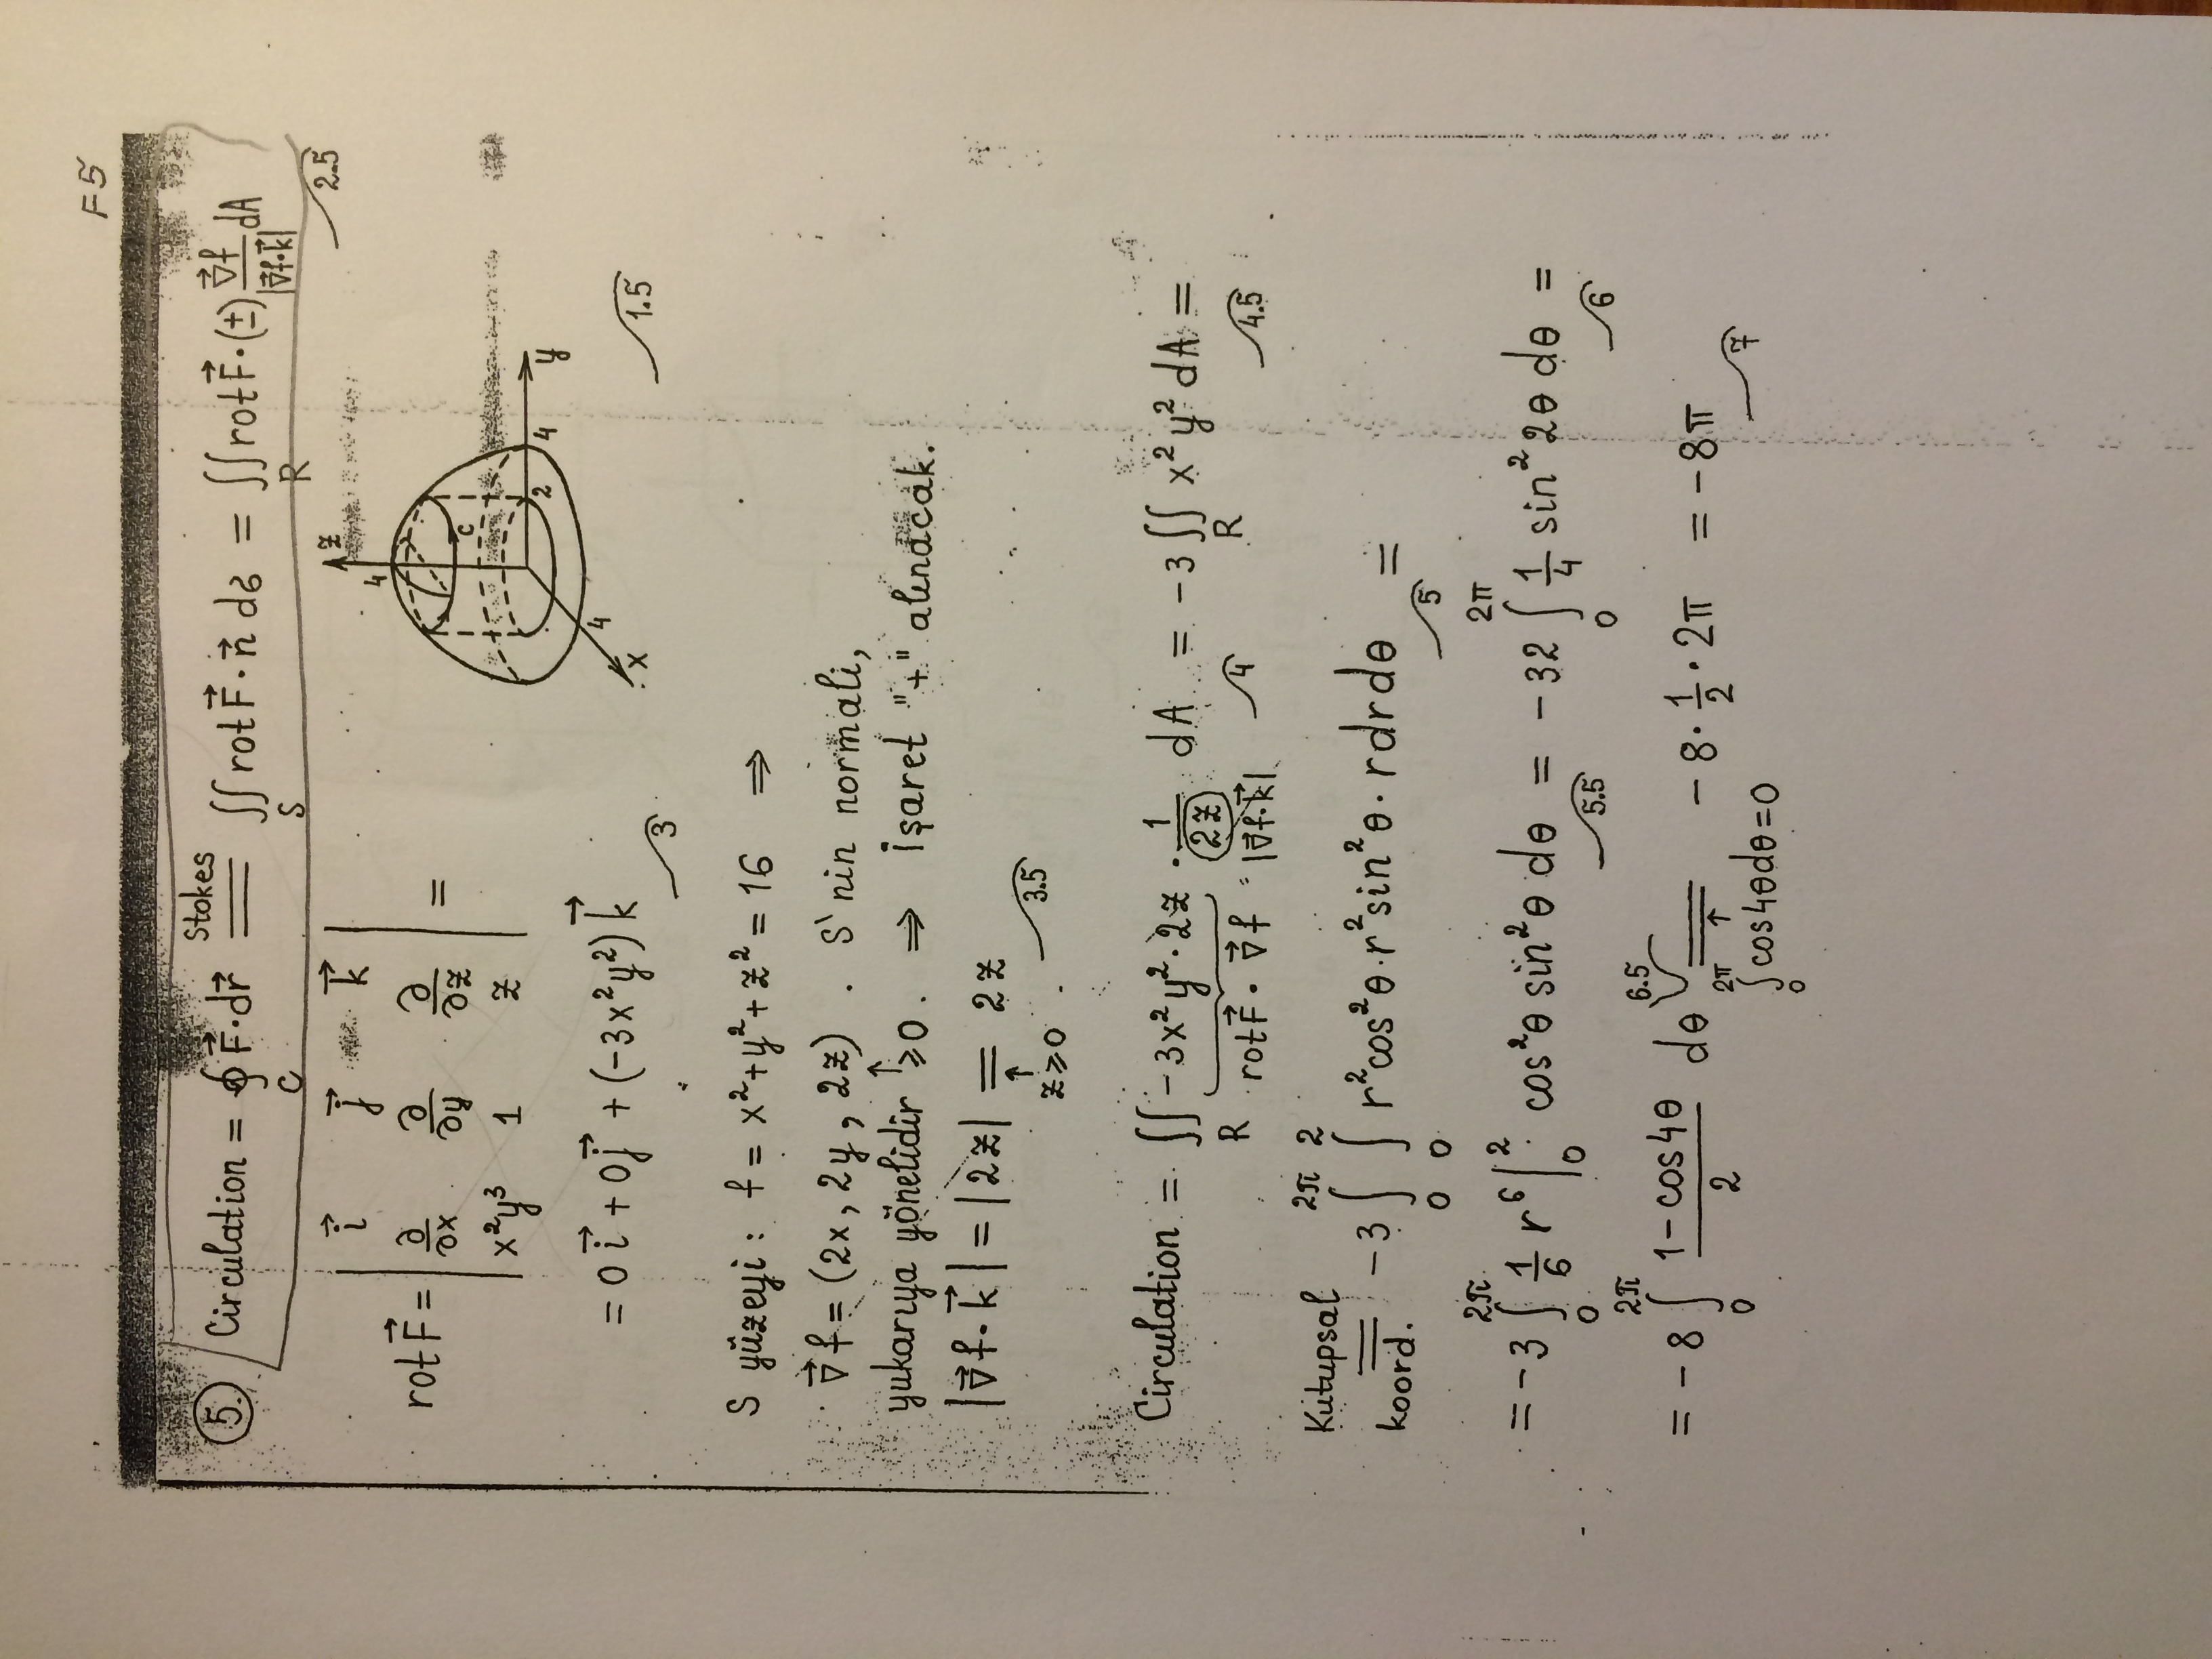 F5
5. Circulation = ∮_C F⃗·dr⃗ =(Stokes) ∬_S rot F⃗ · n⃗ dσ = ∬_R rot F⃗ · (±) ∇⃗f / |∇⃗f·k⃗| dA
2.5
rot F⃗ = | i⃗ j⃗ k⃗ |
| ∂/∂x ∂/∂y ∂/∂z | =
| x²y³ 1 z |
= 0 i⃗ + 0 j⃗ + (-3x²y²) k⃗
3
z
4
C
2 4 y
4
x
1.5
S yüzeyi : f = x² + y² + z² = 16 ⇒
∇⃗f = (2x, 2y, 2z) . S'nin normali,
yukarıya yönelidir ↑ ≥0 . ⇒ İşaret "+" alınacak.
|∇⃗f·k⃗| = |2z| = 2z
↑
z≥0 .
3.5
Circulation = ∬_R -3x²y²·2z · 1/(2z) dA = -3 ∬_R x²y² dA =
rot F⃗ · ∇⃗f |∇⃗f·k⃗| 4 4.5
Kutupsal
koord. = -3 ∫₀^{2π} ∫₀^2 r²cos²θ·r²sin²θ· r dr dθ =
5
= -3 ∫₀^{2π} 1/6 r⁶ |₀² cos²θ sin²θ dθ = -32 ∫₀^{2π} 1/4 sin²2θ dθ =
5.5 6
= -8 ∫₀^{2π} (1-cos4θ)/2 dθ = -8 · 1/2 · 2π = -8π
6.5 ↑ 7
∫₀^{2π} cos4θdθ=0